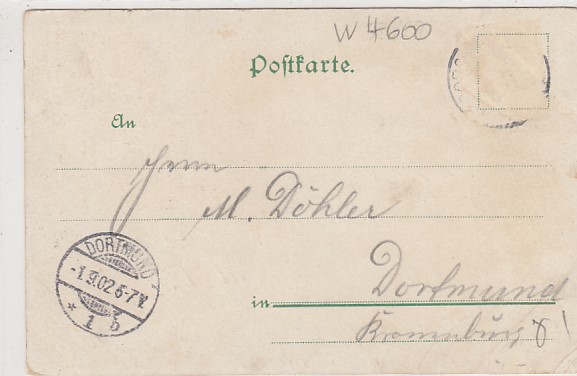 W 4600
Postkarte.
An
Herrn
M. Döhler
DORTMUND
-1.9.02.6-7V.
* 1 b
in Dortmund
Kronenburg 8!